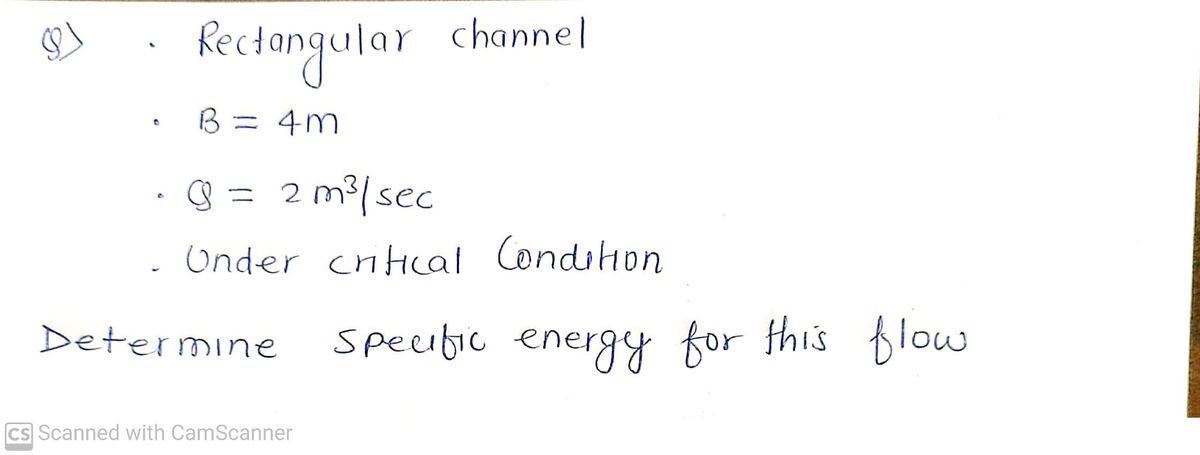 Q> . Rectangular channel
. B = 4m
. Q = 2 m³/sec
. Under critical Condition
Determine specific energy for this flow
CS Scanned with CamScanner